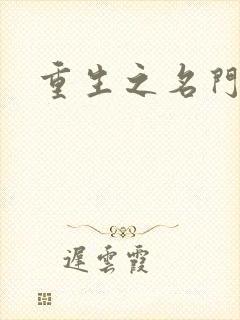 重生之名門
遲雲霞